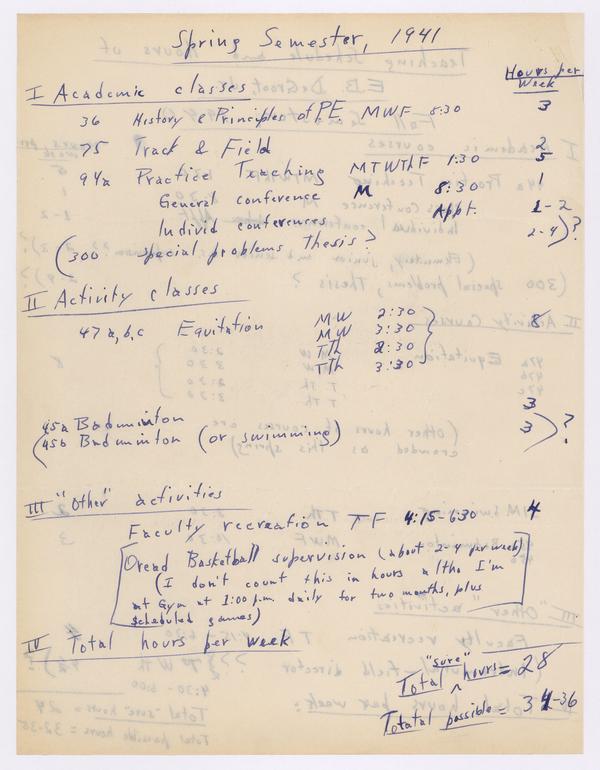 Spring Semester, 1941
Hours per
Week
I Academic classes
36 History & Principles of P.E. MWF 8:30 3
75 Track & Field 2
94a Practice Teaching MTWThF 1:30 5
General conference M 8:30 1
Individ conferences Appt. 1-2
(300 special problems Thesis? 2-4)?
II Activity classes
47a,b,c Equitation MW 2:30 8
MW 3:30
TTh 2:30
TTh 3:30
45a Badminton 3
(45b Badminton (or swimming) 3)?
III "Other" activities
Faculty recreation TF 4:15-6:30 4
Oread Basketball supervision (about 2-4 per week)
(I don't count this in hours altho I'm
at Gym at 1:00 p.m. daily for two months, plus
scheduled games)
IV Total hours per week
Total "sure" hours = 28
Totatal possible = 34-36